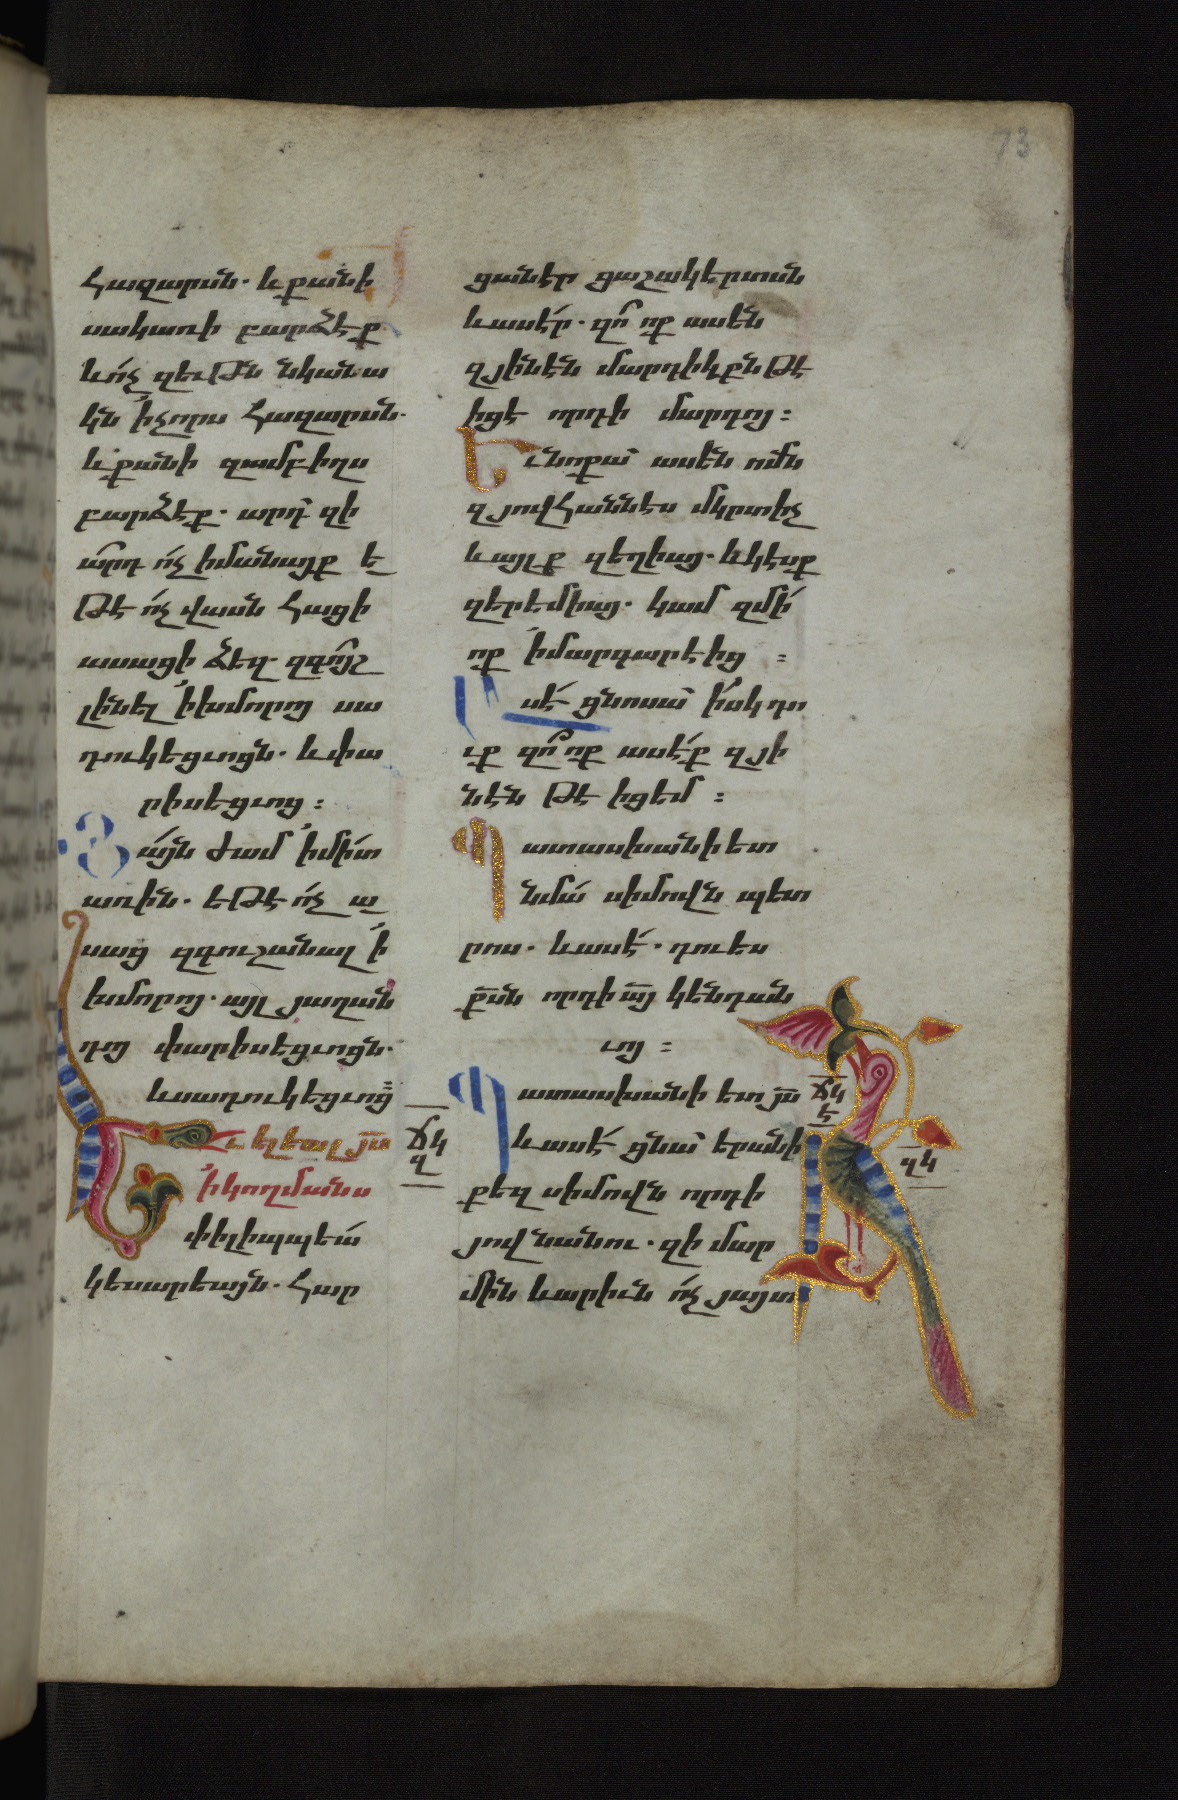 73
հազարսն. և քանի
սակառի բարձէք
և ոչ զեւթն նկանա
կն ՚ի չորս հազարսն.
և քանի զամբիղս
բարձէք. արդ զի
արդ ոչ իմանայք ե
թէ ոչ վասն հացի
ասացի ձեզ. զգոյշ
լինել ՚ի խմորոյ սա
դուկեցւոցն. և փա
րիսեցւոց :
Յայն ժամ ՚ի միտ
առին. եթէ ոչ ա
սաց զգուշանալ ՚ի
խմորոյ. այլ յաղան
դոյ փարիսեցւոցն.
և սադուկեցւոց
Եւ ելեալ յս
՚ի կողմանս
փիլիպպեա
կեսարեայն. հար
ճկ
զ
ցանէր ցաշակերտսն
և ասէր. զո ոք ասեն
զյինէն մարդիկ ըն թէ
իցէ որդի մարդոյ :
Եւ նոքա ասեն ոմն
զյովհաննէս մկրտիչ
և այլք զեղիայ. և կէսք
զերեմիայ. կամ զմի
ոք ՚ի մարգարէից :
Ասէ ցնոսա իսկ դո
ւք զո ոք ասէք զյի
նէն թէ իցեմ :
Պատասխանի ետ
նմա սիմովն պետ
րոս. և ասէ. դու ես
քսն որդի այ կենդան
ւոյ :
Պատասխանի ետ յս
և ասէ ցնա երանի
քեզ սիմովն որդի
յովնանու. զի մար
մին և արիւն ոչ յայտ
ճկ
է
զկ